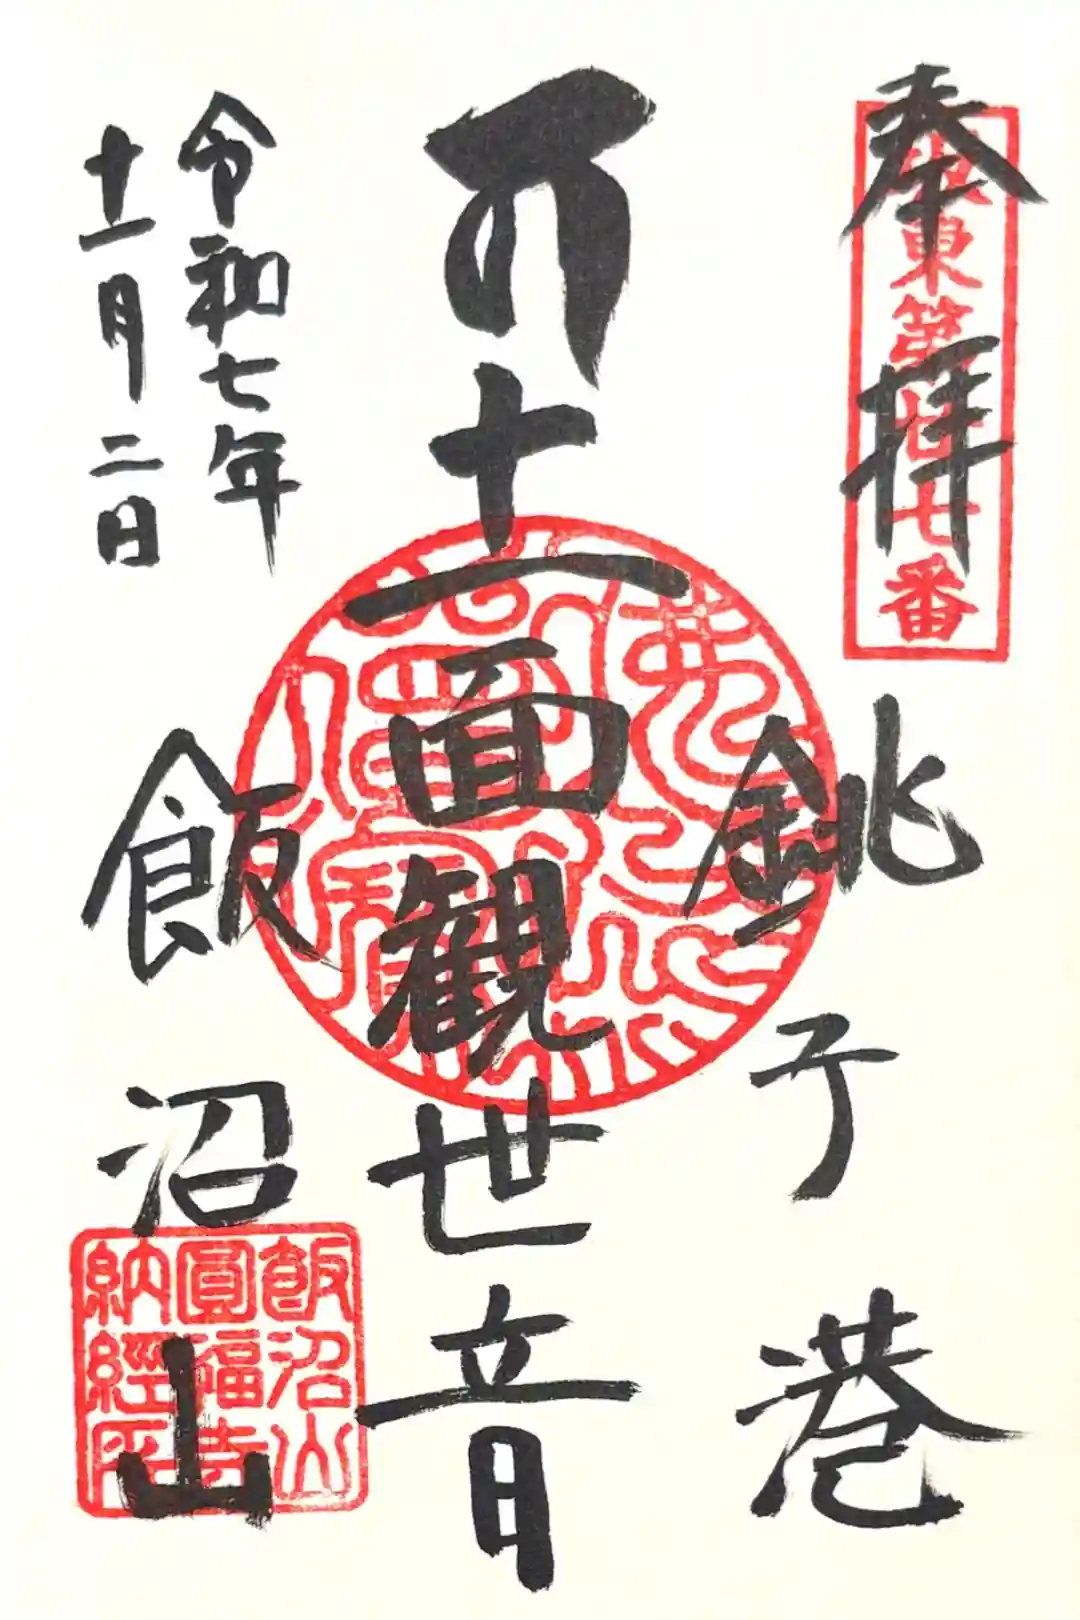 奉拝
坂東第廿七番
銚子港
十一面観世音
令和七年
十一月二日
飯沼山
飯沼山
圓福寺
納經所